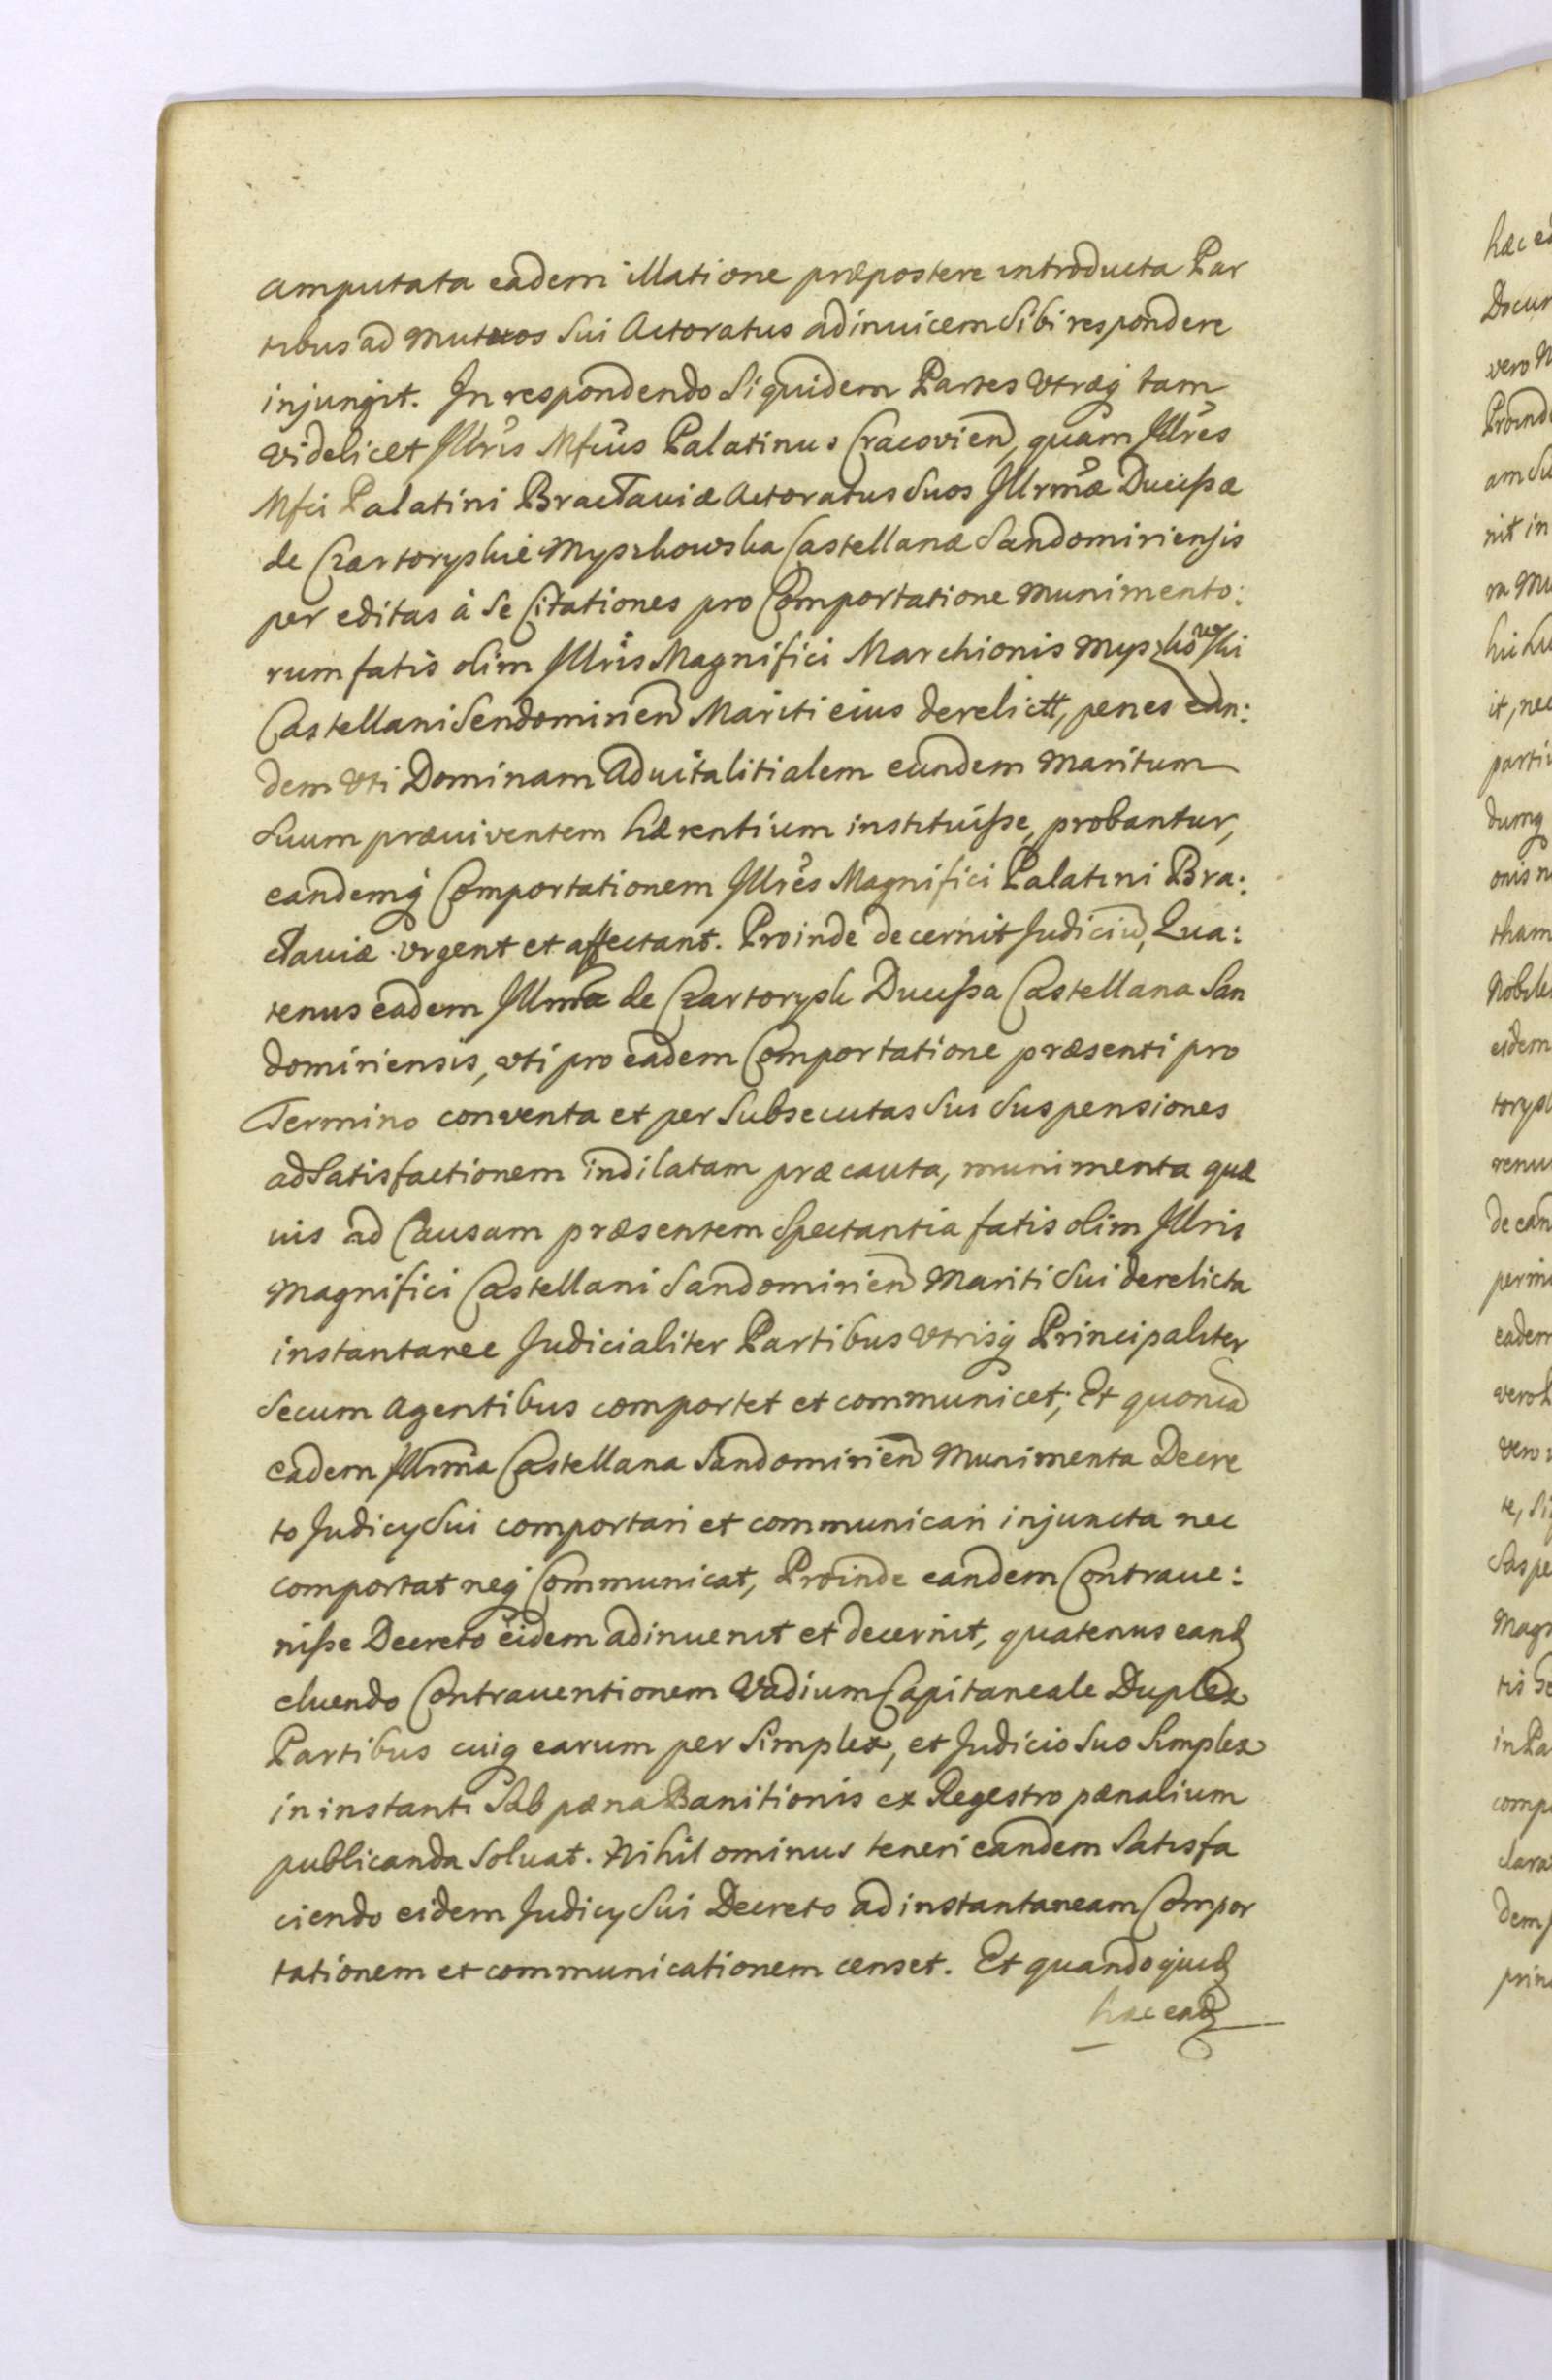 amputata eadem illatione præpostere introducta Par
tibus ad mutuos Sui Actoratus adinuicem Sibi respondere
injungit. In respondendo Siquidem Partes Vtræq tam
videlicet Illris Mfcus Palatinus Cracovien, quam Illres
Mfci Palatini Braclauiæ Actoratus Suos Illrmæ Ducißæ
de Czartoryskie Myszkowska Castellanæ Sandomiriensis
per editas à Se Citationes pro Comportatione munimento:
rum fatis olim Illris Magnifici Marchionis Myszkowski
Castellani Sendomirien Mariti eius derelictt, penes ean:
dem Vti Dominam Aduitalitialem eundem Maritum
Suum præuiventem hærentium instituiße, probantur,
eandemq Comportationem Illres Magnifici Palatini Bra:
clauiæ Vrgent et affectant. Proinde decernit Judiciu, Qua:
tenus eadem Illrma de Czartorysk Ducißa Castellana San
domiriensis, vti pro eadem Comportatione præsenti pro
Termino conventa et per Subsecutas Sui Suspensiones
ad Satisfactionem indilatam præcauta, munimenta quæ
uis ad Causam præsentem Spectantia fatis olim Illris
Magnifici Castellani Sandomirien Mariti Sui derelicta
instantanee Judicialiter Partibus Vtrisq Principaliter
Secum Agentibus comportet et communicet; Et quonia
eadem Illrma Castellana Sandomirien Munimenta Decre
to Judicy Sui comportari et communicari injuncta nec
comportat neq Communicat, Proinde eandem Contraue:
niße Decreto eidem adinuenit et decernit, quatenus eand
eluendo Contrauentionem Vadium Capitaneale Duplex
Partibus cuiq earum per Simplex, et Judicio Suo Simplex
in instanti Sub pæna Banitionis ex Regestro pænalium
publicanda Soluat. Nihilominus teneri eandem Satisfa
ciendo eidem Judicy Sui Decreto ad instantaneam Compor
tationem et communicationem censet. Et quandoquid
hæc ead